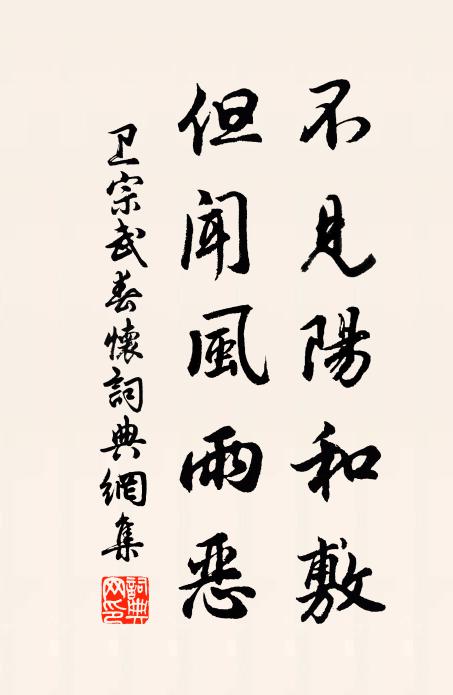 不見陽和敷
但聞風雨惡
卫宗武春懷詞典網集
詞典網印